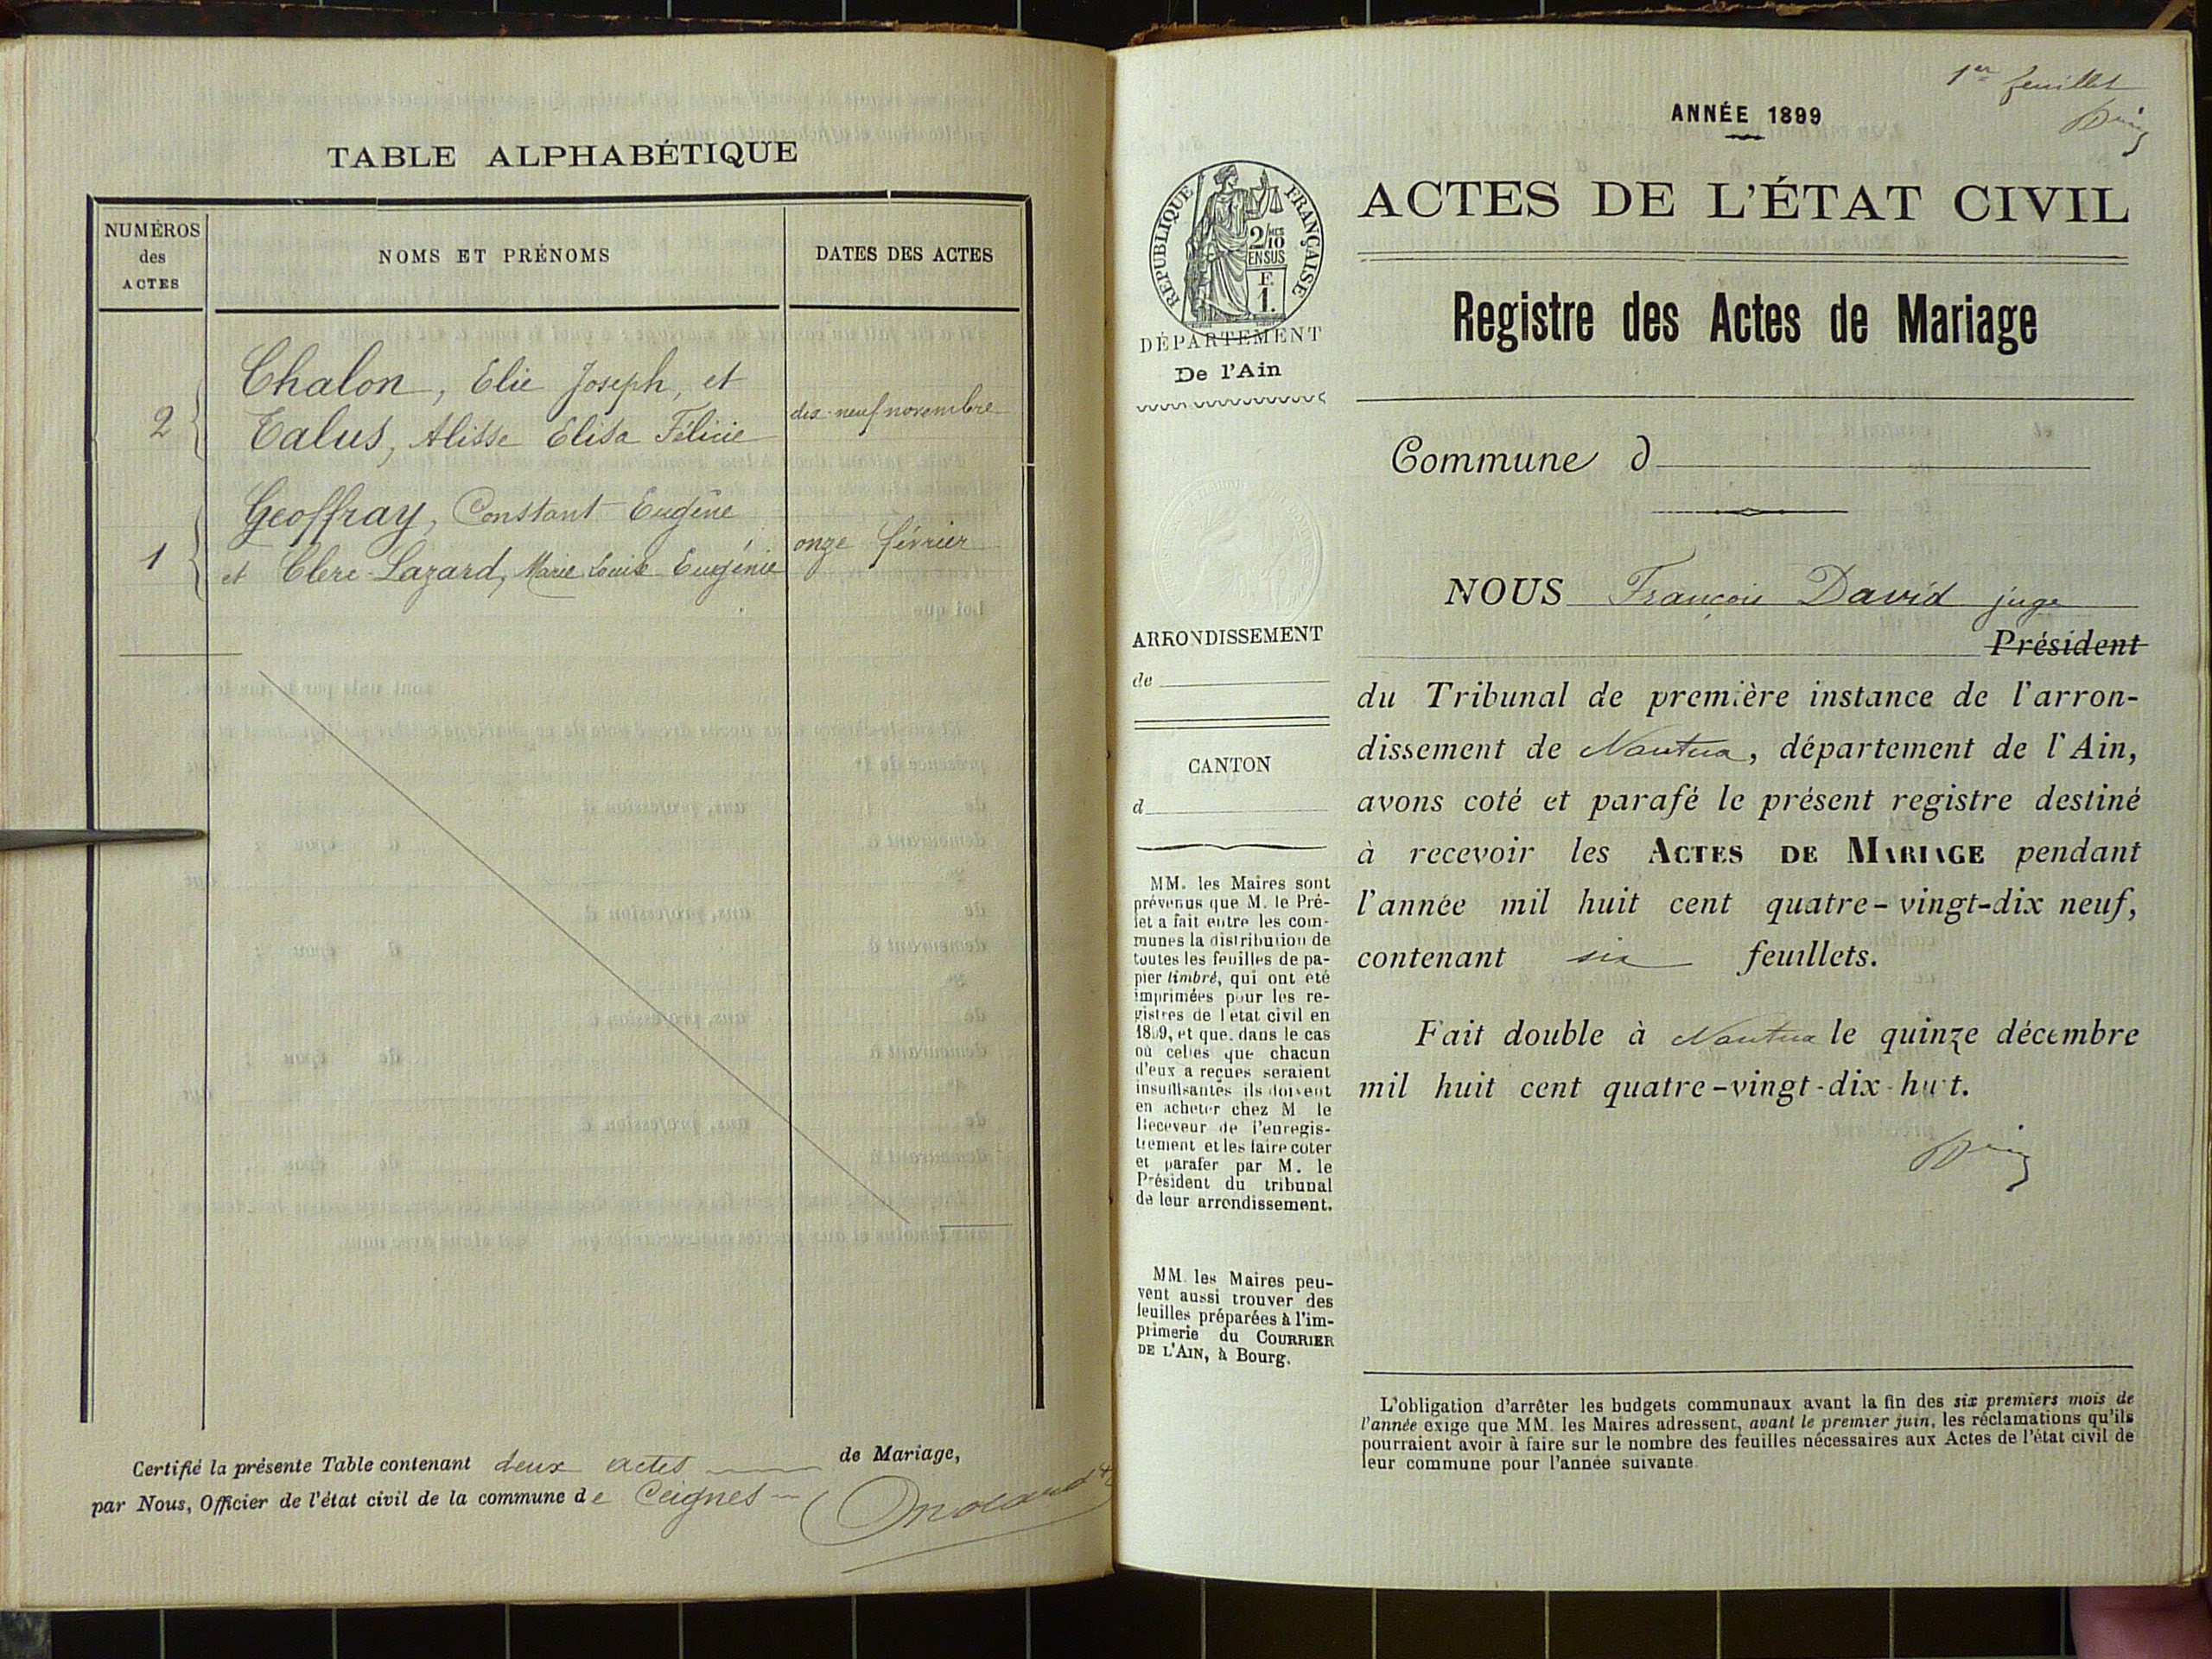 TABLE ALPHABÉTIQUE
NUMÉROS
des
ACTES
NOMS ET PRÉNOMS
DATES DES ACTES
Chalon, Elie Joseph, et
2
dix-neuf novembre
Talus, Alisse Elisa Félicie
Geoffray, Constant Eugène
1
onze février
et Clerc-Lazard, Marie Louise Eugénie
Certifié la présente Table contenant deux actes de Mariage,
par Nous, Officier de l'état civil de la commune de Ceignes
1er feuillet
ANNÉE 1899
RÉPUBLIQUE FRANÇAISE
2/10
EN SUS
F.
1.
DÉPARTEMENT
De l'Ain
ARRONDISSEMENT
de
CANTON
d
MM. les Maires sont
prévenus que M. le Pré-
fet a fait entre les com-
munes la distribution de
toutes les feuilles de pa-
pier timbré, qui ont été
imprimées pour les re-
gistres de l'état civil en
1899, et que, dans le cas
où celles que chacun
d'eux a reçues seraient
insuffisantes ils doivent
en acheter chez M. le
Receveur de l'enregis-
trement et les faire coter
et parafer par M. le
Président du tribunal
de leur arrondissement.
MM. les Maires peu-
vent aussi trouver des
feuilles préparées à l'im-
primerie du COURRIER
DE L'AIN, à Bourg.
ACTES DE L'ÉTAT CIVIL
Registre des Actes de Mariage
Commune d
NOUS François David juge
Président
du Tribunal de première instance de l'arron-
dissement de Nantua, département de l'Ain,
avons coté et parafé le présent registre destiné
à recevoir les ACTES DE MARIAGE pendant
l'année mil huit cent quatre-vingt-dix neuf,
contenant six feuillets.
Fait double à Nantua le quinze décembre
mil huit cent quatre-vingt-dix-huit.
L'obligation d'arrêter les budgets communaux avant la fin des six premiers mois de
l'année exige que MM. les Maires adressent, avant le premier juin, les réclamations qu'ils
pourraient avoir à faire sur le nombre des feuilles nécessaires aux Actes de l'état civil de
leur commune pour l'année suivante.